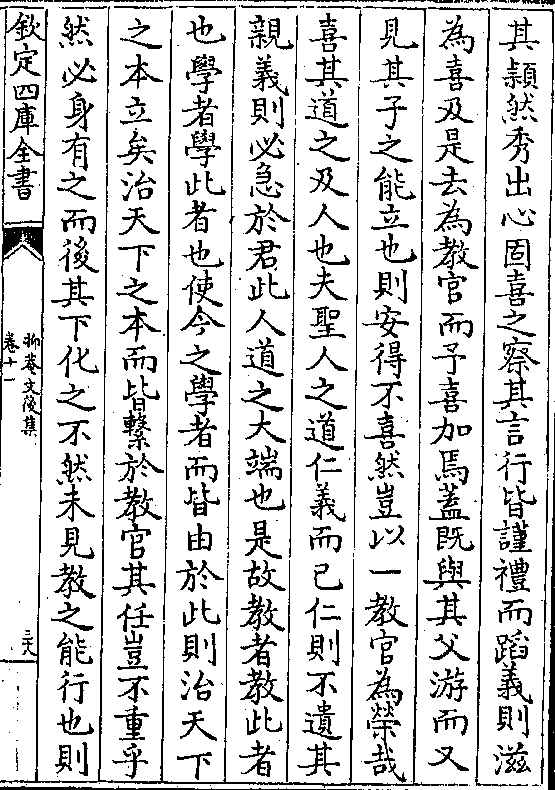 其頴然秀出心固喜之察其言行皆謹禮而蹈義則滋
為喜及是去為教官而予喜加焉蓋既與其父游而又
見其子之能立也則安得不喜然豈以一教官為榮哉
喜其道之及人也夫聖人之道仁義而已仁則不遺其
親義則必急於君此人道之大端也是故教者教此者
也學者學此者也使今之學者而皆由於此則治天下
之本立矣治天下之本而皆繫於教官其任豈不重乎
然必身有之而後其下化之不然未見教之能行也則
欽定四庫全書
抑菴文後集
卷十一